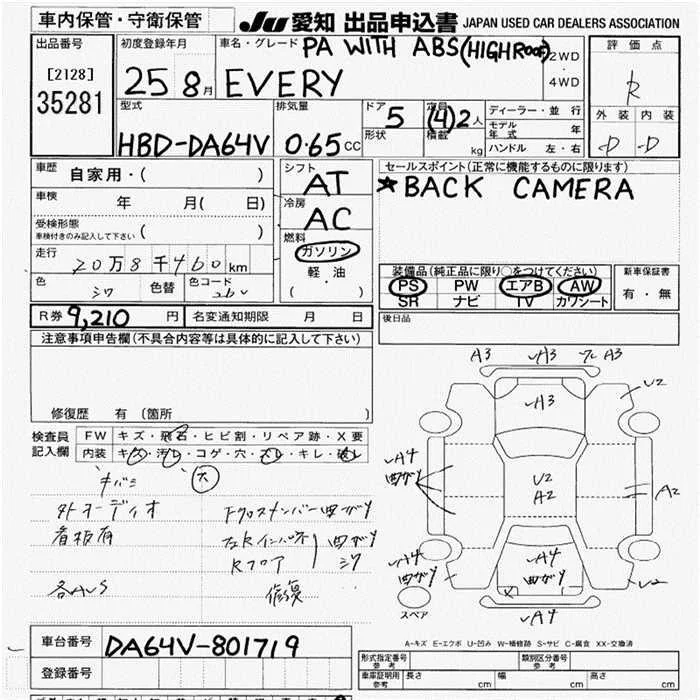 車内保管・守衛保管
JU 愛知 出品申込書 JAPAN USED CAR DEALERS ASSOCIATION
出品番号
[2128]
35281
初度登録年月
25 8月
車名・グレード
PA WITH ABS (HIGH ROOF)
EVERY
2WD
・
4WD
評価点
R
外装 内装
D D
型式
HBD-DA64V
排気量
0.65 CC
ドア 5
形状
定員 (4)2人
積載 kg
ディーラー・並行
モデル年式 年
ハンドル 左・右
車歴
自家用・( )
車検 年 月( 日)
受検形態
車検付きのみ記入して下さい ( )
走行
20万8千460km
色 シワ 色替 色コード 26U
シフト
AT
冷房
AC
燃料
ガソリン
軽・油
( ・ )
セールスポイント(正常に機能するものに限ります)
★BACK CAMERA
装備品(純正品に限り○をつけてください)
PS PW エアB AW
SR ナビ TV カワシート
新車保証書
有・無
R券 9,210 円 名変通知期限 月 日
後日品
注意事項申告欄(不具合内容等は具体的に記入して下さい)
修復歴 有(箇所 )
検査員
記入欄
FW キズ・飛石・ヒビ割・リペア跡・X要
内装 キズ・汚レ・コゲ・穴・スレ・キレ・破レ
大
外オーディオ
看板有
各AUS
Fクロスメンバー曲ガリ
左Rインパネ 曲ガリ
Rフロア シワ
修復
A3 A3 A3
U2
A3
A4
曲ガリ
U2
A2
A2
A4
曲ガリ
A4
曲ガリ
X
U2
A4
スペア
A-キズ E-エクボ U-凹み W-補修跡 S-サビ C-腐食 XX-交換済
車台番号 DA64V-801719
登録番号
形式指定番号
参考
類別区分番号
参考
車庫証明用
参考
長さ cm 幅 cm 高さ cm